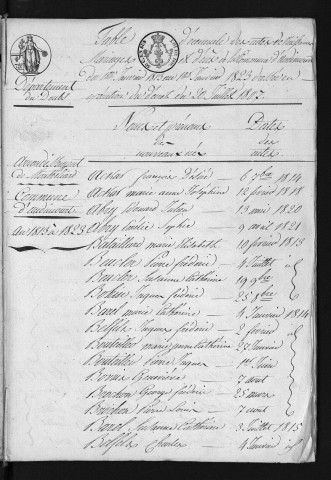 Table décennale des actes de Naissances
Mariages & Décès de la Commune d'Audincourt
du 1er Janvier 1813 au 1er Janvier 1823 dressée en
exécution du décret du 20 Juillet 1807.
Département
du Doubs
Arrondissement
de Montbéliard
Commune
d'audincourt
An 1813 à 1823
Noms et prénoms
des
nouveaux nés
Dates
des
actes
françois Désiré 6 7bre 1814
marie anne Joséphine 12 février 1818
Abry Edouard 13 mai 1820
Abry Sophie 9 avril 1821
Bataillard marie Elisabeth 19 février 1813
Beucler Pierre frédéric 4 Juillet id
Beucler Susanne Catherine 19 9bre
Jaques frédéric 25 9bre
Banet marie Catherine 4 Janvier 1814
Belfils Jaques frédéric 2 février
marie Catherine 27 Janvier
Pierre Jaques 1er Juin
7 avril
Bourbon George frédéric 25 mars
Bourbon Pierre Louis 7 avril
Banet Susanne Catherine 3 Juillet 1815
Belfils Charles 4 Janvier id